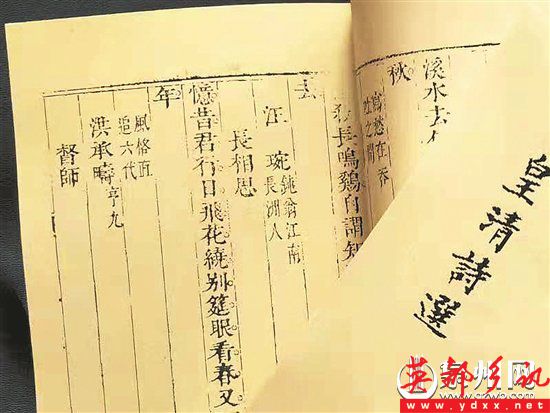 皇清詩選
溪水去
秋
寫愁在吞
吐之間
長鳴鷄自謂知
汪琬
鈍翁江南
長洲人
長相思
憶昔君行日飛花繞别筵眠看春又
年
風格直
追六代
洪承疇
亨九
督師
州网
英都乡讯
www.ydxx.net